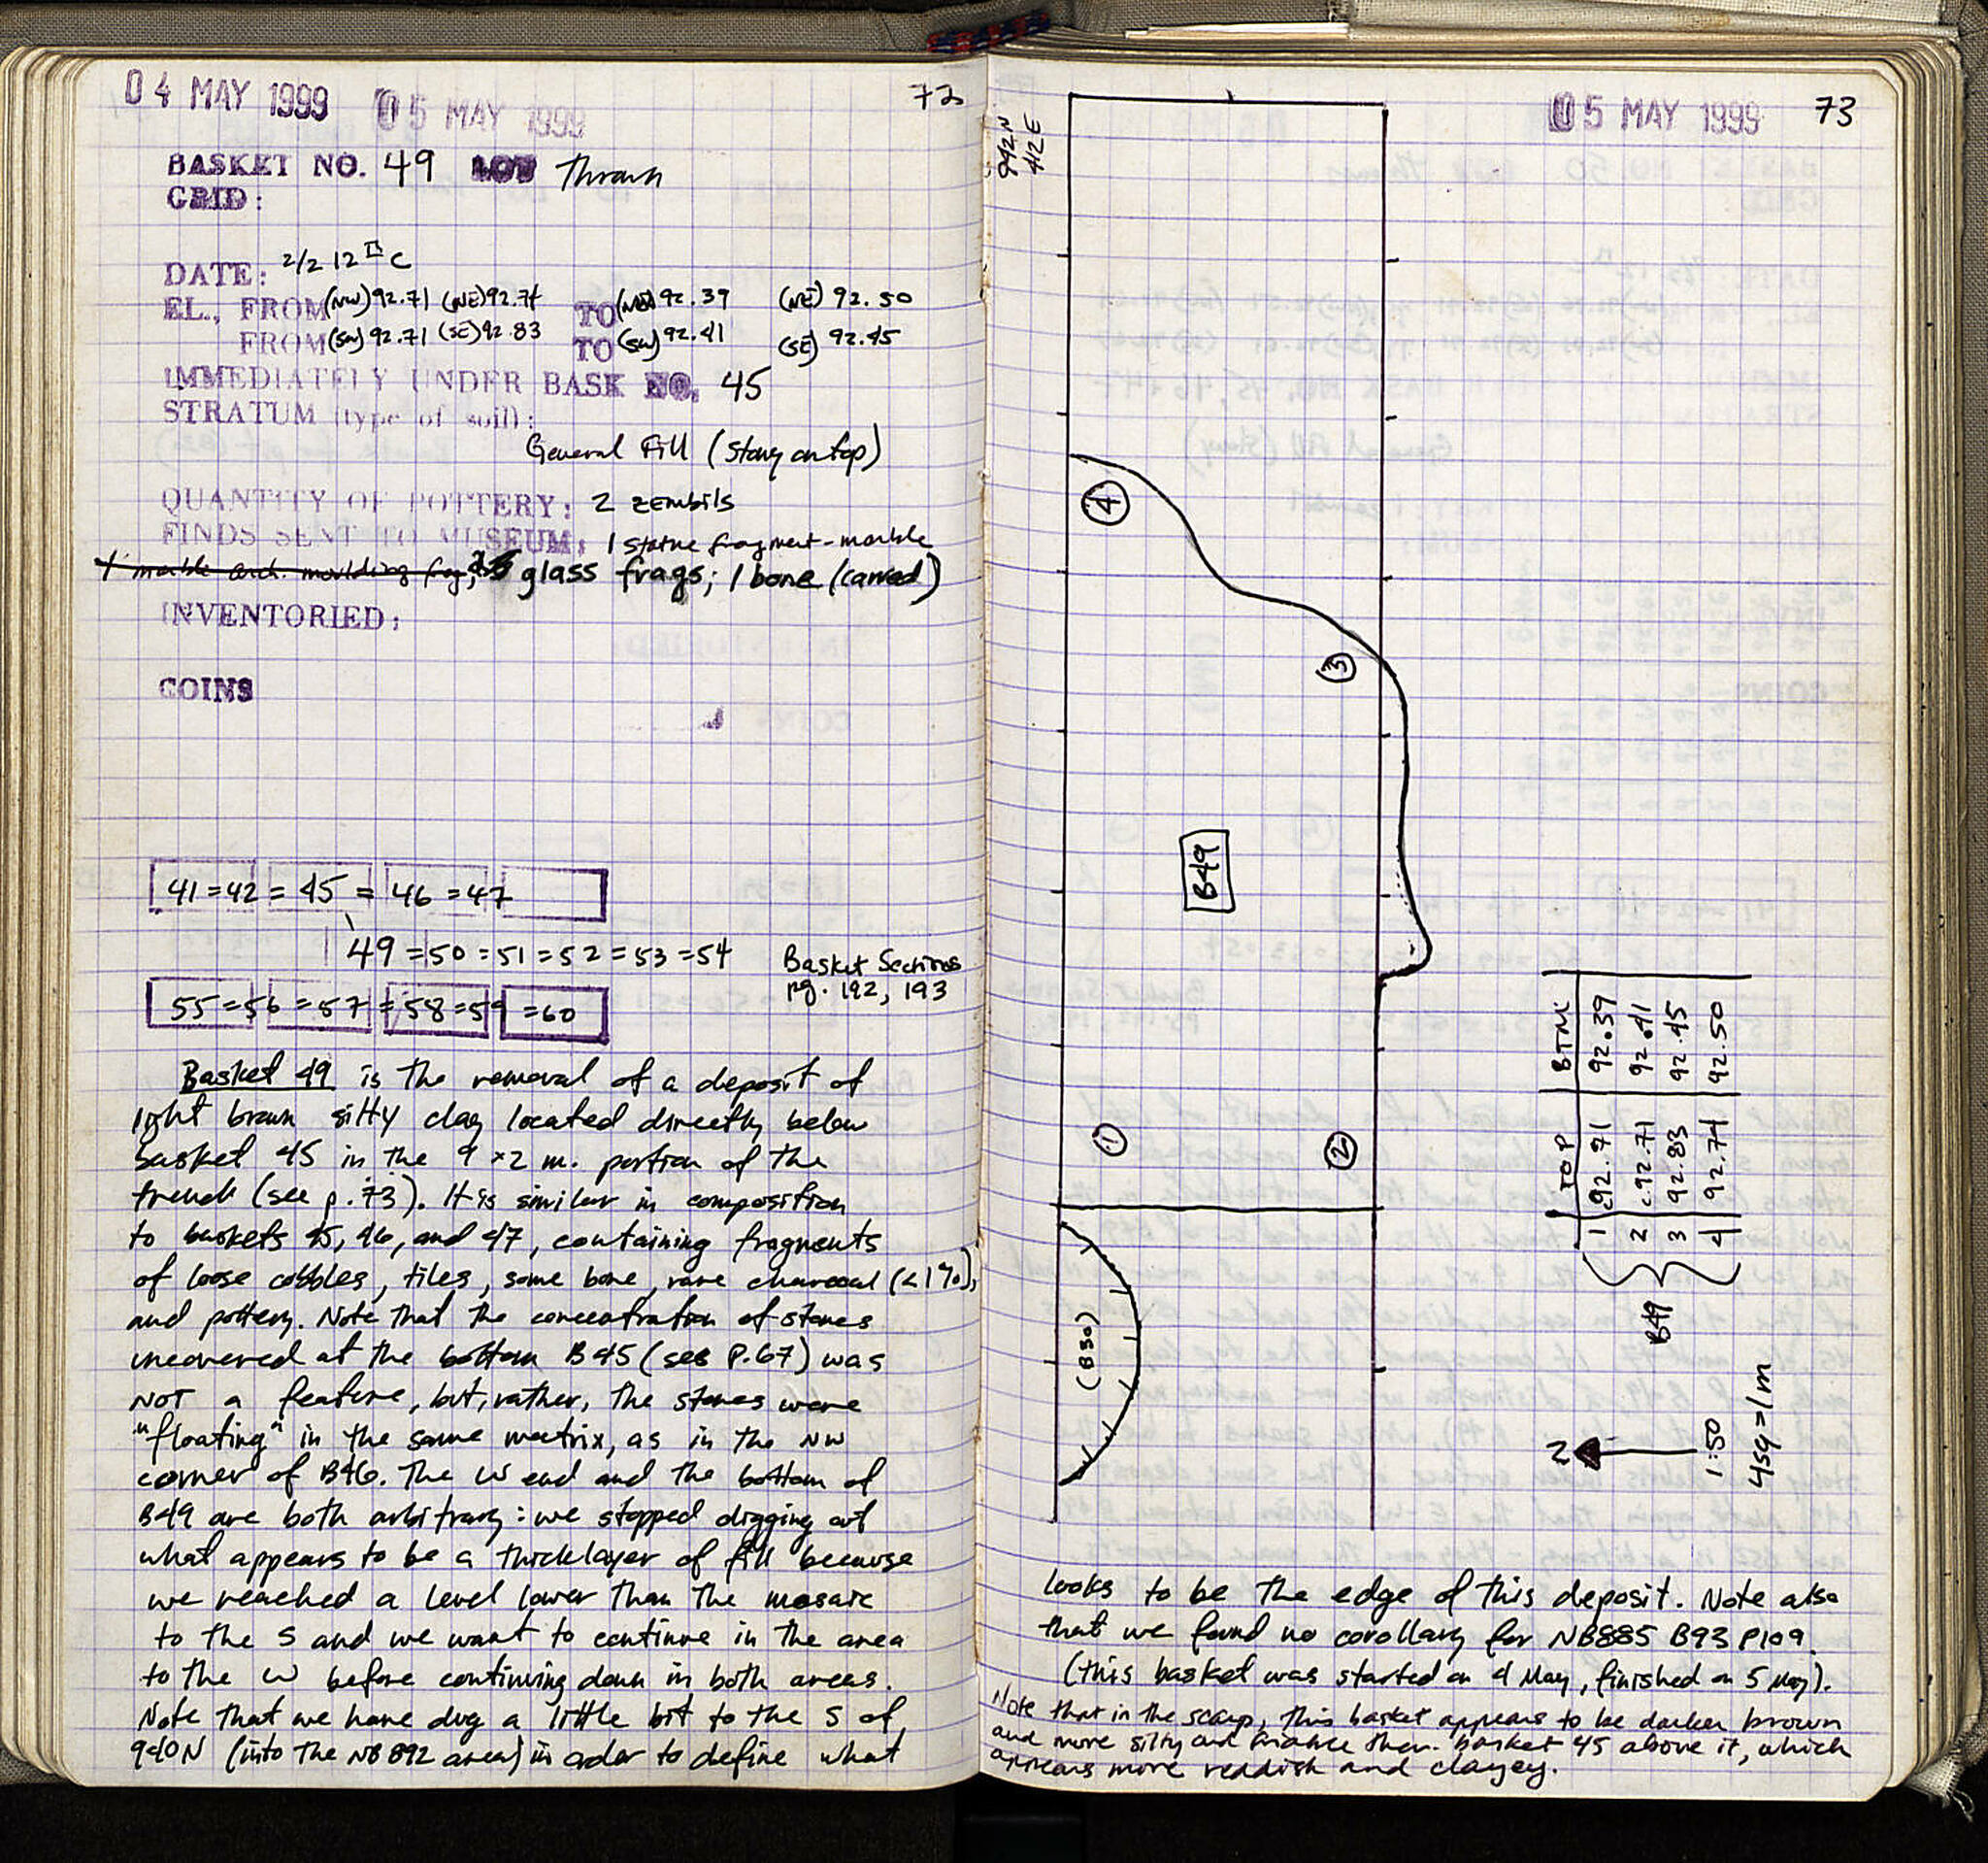 04 MAY 1999 05 MAY 1999 72
BASKET NO. 49 LOT Thrown
GRID:
DATE: 2/2 12 C
EL., FROM (NW) 92.71 (NE) 92.74 TO (NW) 92.39 (NE) 92.50
FROM (SW) 92.71 (SE) 92.83 TO (SW) 92.41 (SE) 92.45
IMMEDIATELY UNDER BASK NO. 45
STRATUM (type of soil):
General Fill (stony on top)
QUANTITY OF POTTERY: 2 zembils
FINDS SENT TO MUSEUM: 1 statue fragment - marble
1 marble arch. moulding frag, glass frags; 1 bone (carved)
INVENTORIED:
COINS
41 = 42 = 45 = 46 = 47
49 = 50 = 51 = 52 = 53 = 54
Basket Sections
pg. 192, 193
55 = 56 = 57 = 58 = 59 = 60
Basket 49 is the removal of a deposit of
light brown silty clay located directly below
basket 45 in the 9 x 2 m. portion of the
trench (see p. 73). It is similar in composition
to baskets 45, 46, and 47, containing fragments
of loose cobbles, tiles, some bone, rare charcoal (<1%),
and pottery. Note that the concentration of stones
uncovered at the bottom B45 (see P.67) was
NOT a feature, but, rather, the stones were
"floating" in the same matrix, as in the NW
corner of B46. The W end and the bottom of
B49 are both arbitrary: we stopped digging out
what appears to be a thick layer of fill because
we reached a level lower than the mosaic
to the S and we want to continue in the area
to the W before continuing down in both areas.
Note that we have dug a little bit to the S of
940N (into the NB 892 area) in order to define what
05 MAY 1999 73
942N
412E
4
3
B49
1
2
(B50)
TOP BTM
1 c92.71 92.39
2 c.92.71 92.41
3 92.83 92.45
4 92.74 92.50
B49
N
1:50
4sq=1m
looks to be the edge of this deposit. Note also
that we found no corollary for NB885 B93 P109.
(this basket was started on 4 May, finished on 5 May).
Note that in the scarp, this basket appears to be darker brown
and more silty and friable than basket 45 above it, which
appears more reddish and clayey.